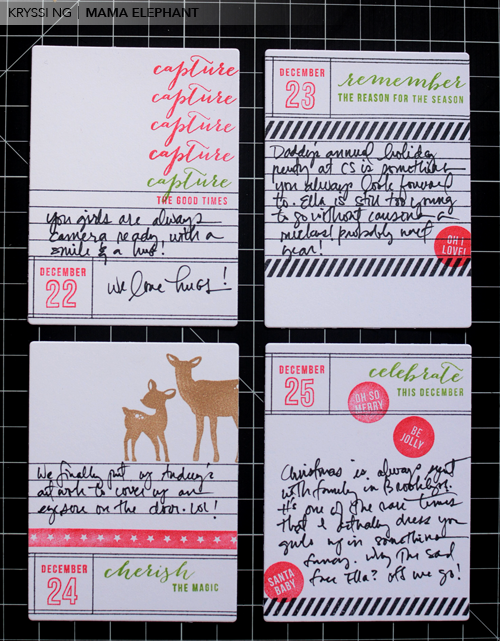 KRYSSI NG | MAMA ELEPHANT
capture
capture
capture
capture
capture
THE GOOD TIMES
you girls are always
camera ready with a
smile & a hug!
DECEMBER
22
we love hugs!
DECEMBER
23
remember
THE REASON FOR THE SEASON
Daddy's annual holiday
party at CS is something
you always look forward
to. Ella is still too young
to go without causing a
probably next
year!
OH I
LOVE!
We finally put up Audrey's
artwork to cover up an
eyesore on the door. LOL!
DECEMBER
24
cherish
THE MAGIC
DECEMBER
25
celebrate
THIS DECEMBER
OH SO
MERRY
BE
JOLLY
Christmas is always spent
with family in Brooklyn.
It's one of the rare times
that I actually dress you
girls up in something
fancy. Why the sad
face Ella? Off we go!
SANTA
BABY